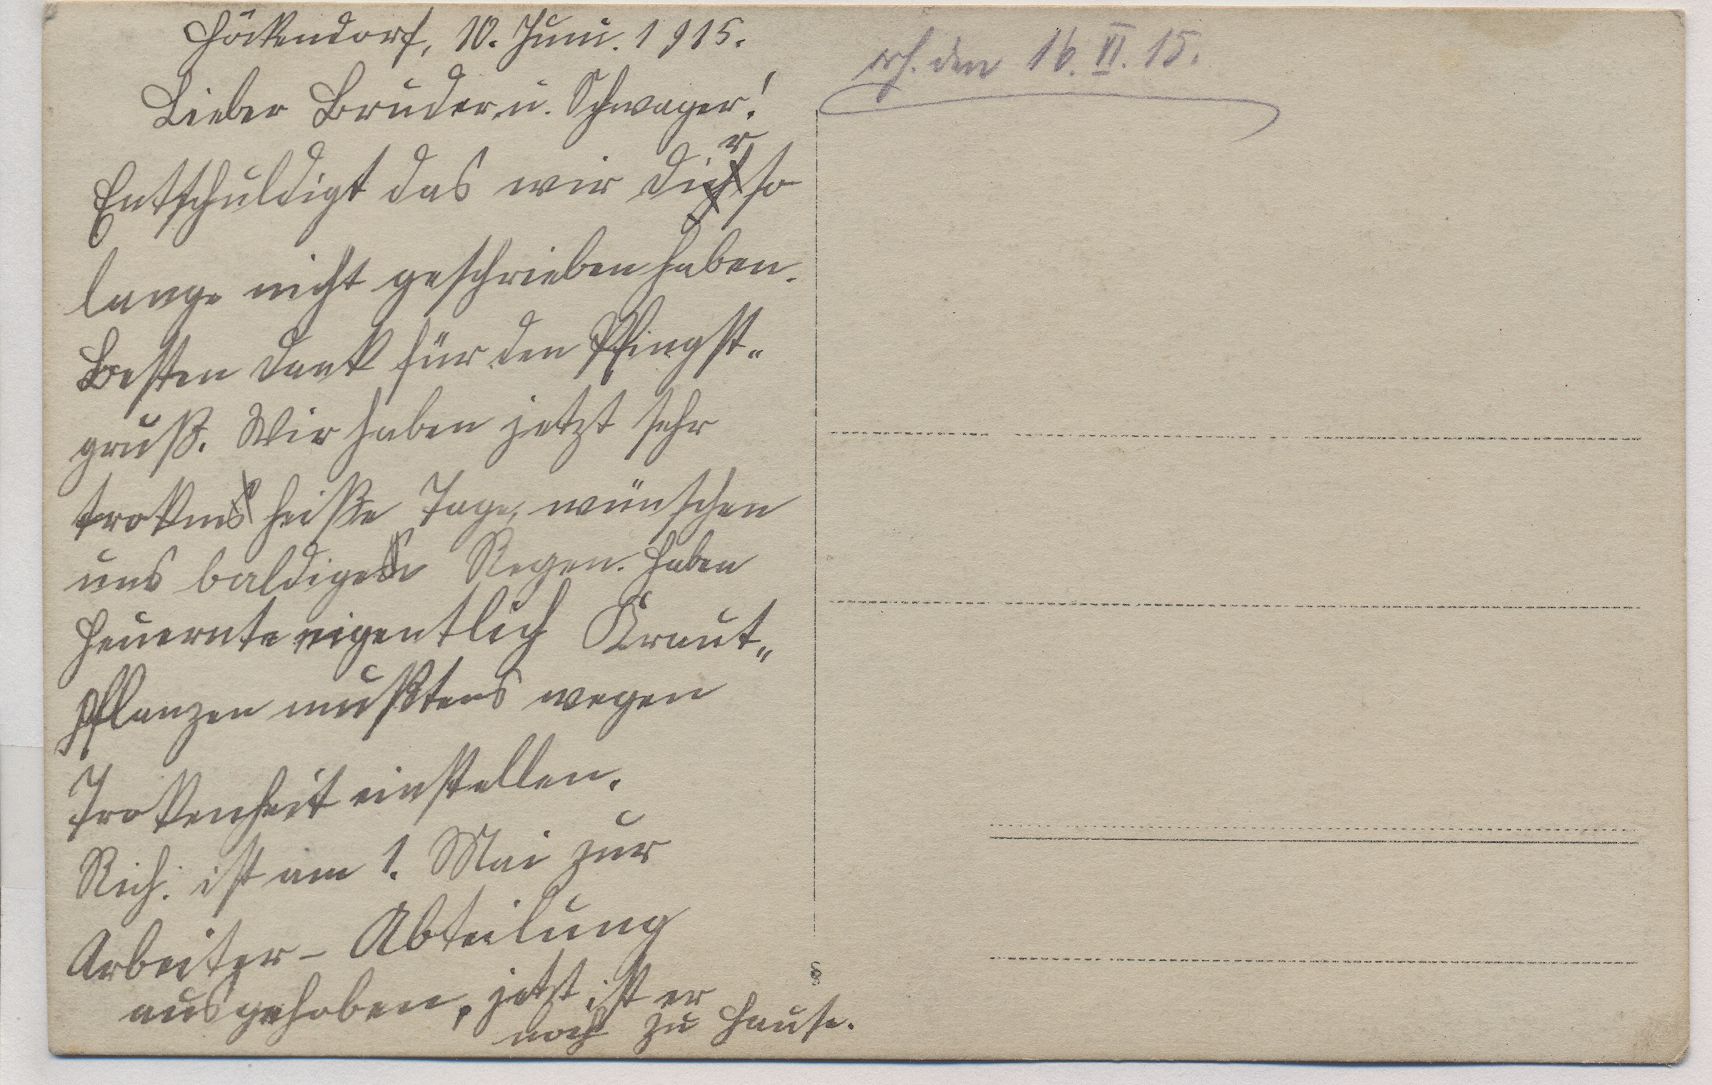 Höckendorf, 10. Juni. 1915.
Lieber Bruder u. Schwager!
Entschuldigt das wir dir so
lange nicht geschrieben haben.
Besten Dank für den Pfingst„
gruß. Wir haben jetzt sehr
trokne heiße Tage, wünschen
uns baldigen Regen. Haben
Heuernte eigentlich Kraut„
pflanzen mußtens wegen
Trokenheit einstellen.
Rich: ist am 1. Mai zur
Arbeiter-Abteilung
ausgehoben, jetzt ist er
noch zu Hause.
erh. den 16. VI. 15.